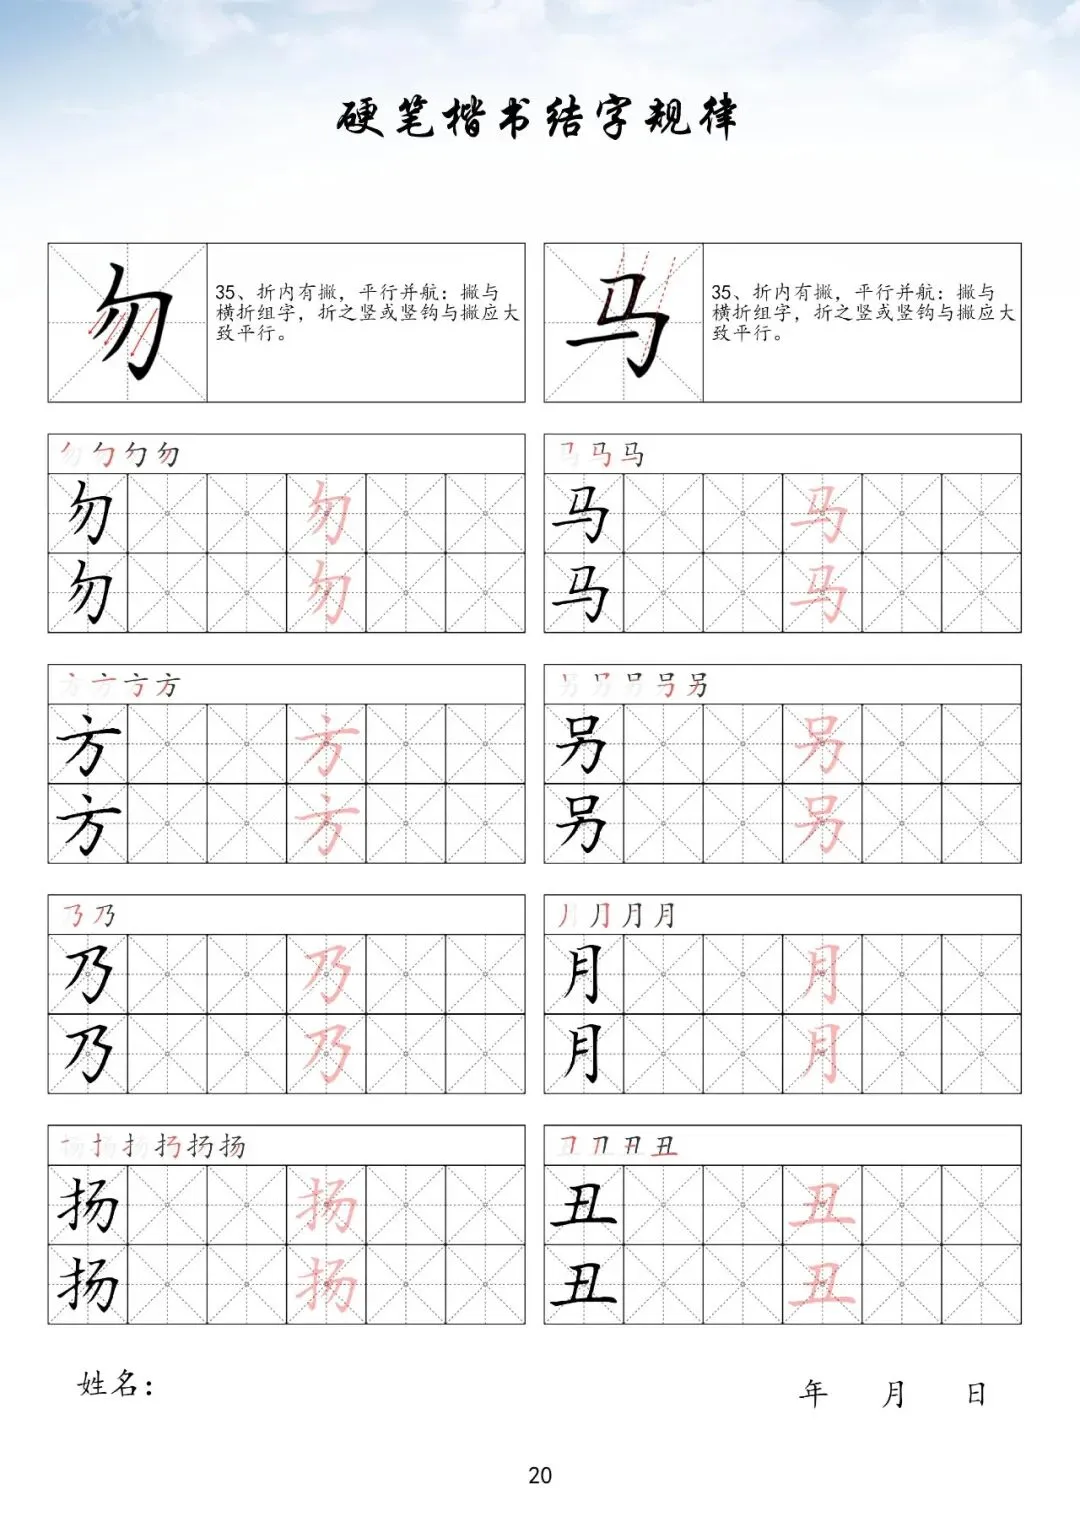 硬笔楷书结字规律
勿
35、折内有撇，平行并航：撇与
横折组字，折之竖或竖钩与撇应大
致平行。
马
35、折内有撇，平行并航：撇与
横折组字，折之竖或竖钩与撇应大
致平行。
勿
勿 勿
勿 勿
马
马 马
马 马
方
方 方
方 方
另
另 另
另 另
乃
乃 乃
乃 乃
月
月 月
月 月
扬
扬 扬
扬 扬
丑
丑 丑
丑 丑
姓名：
年 月 日
20